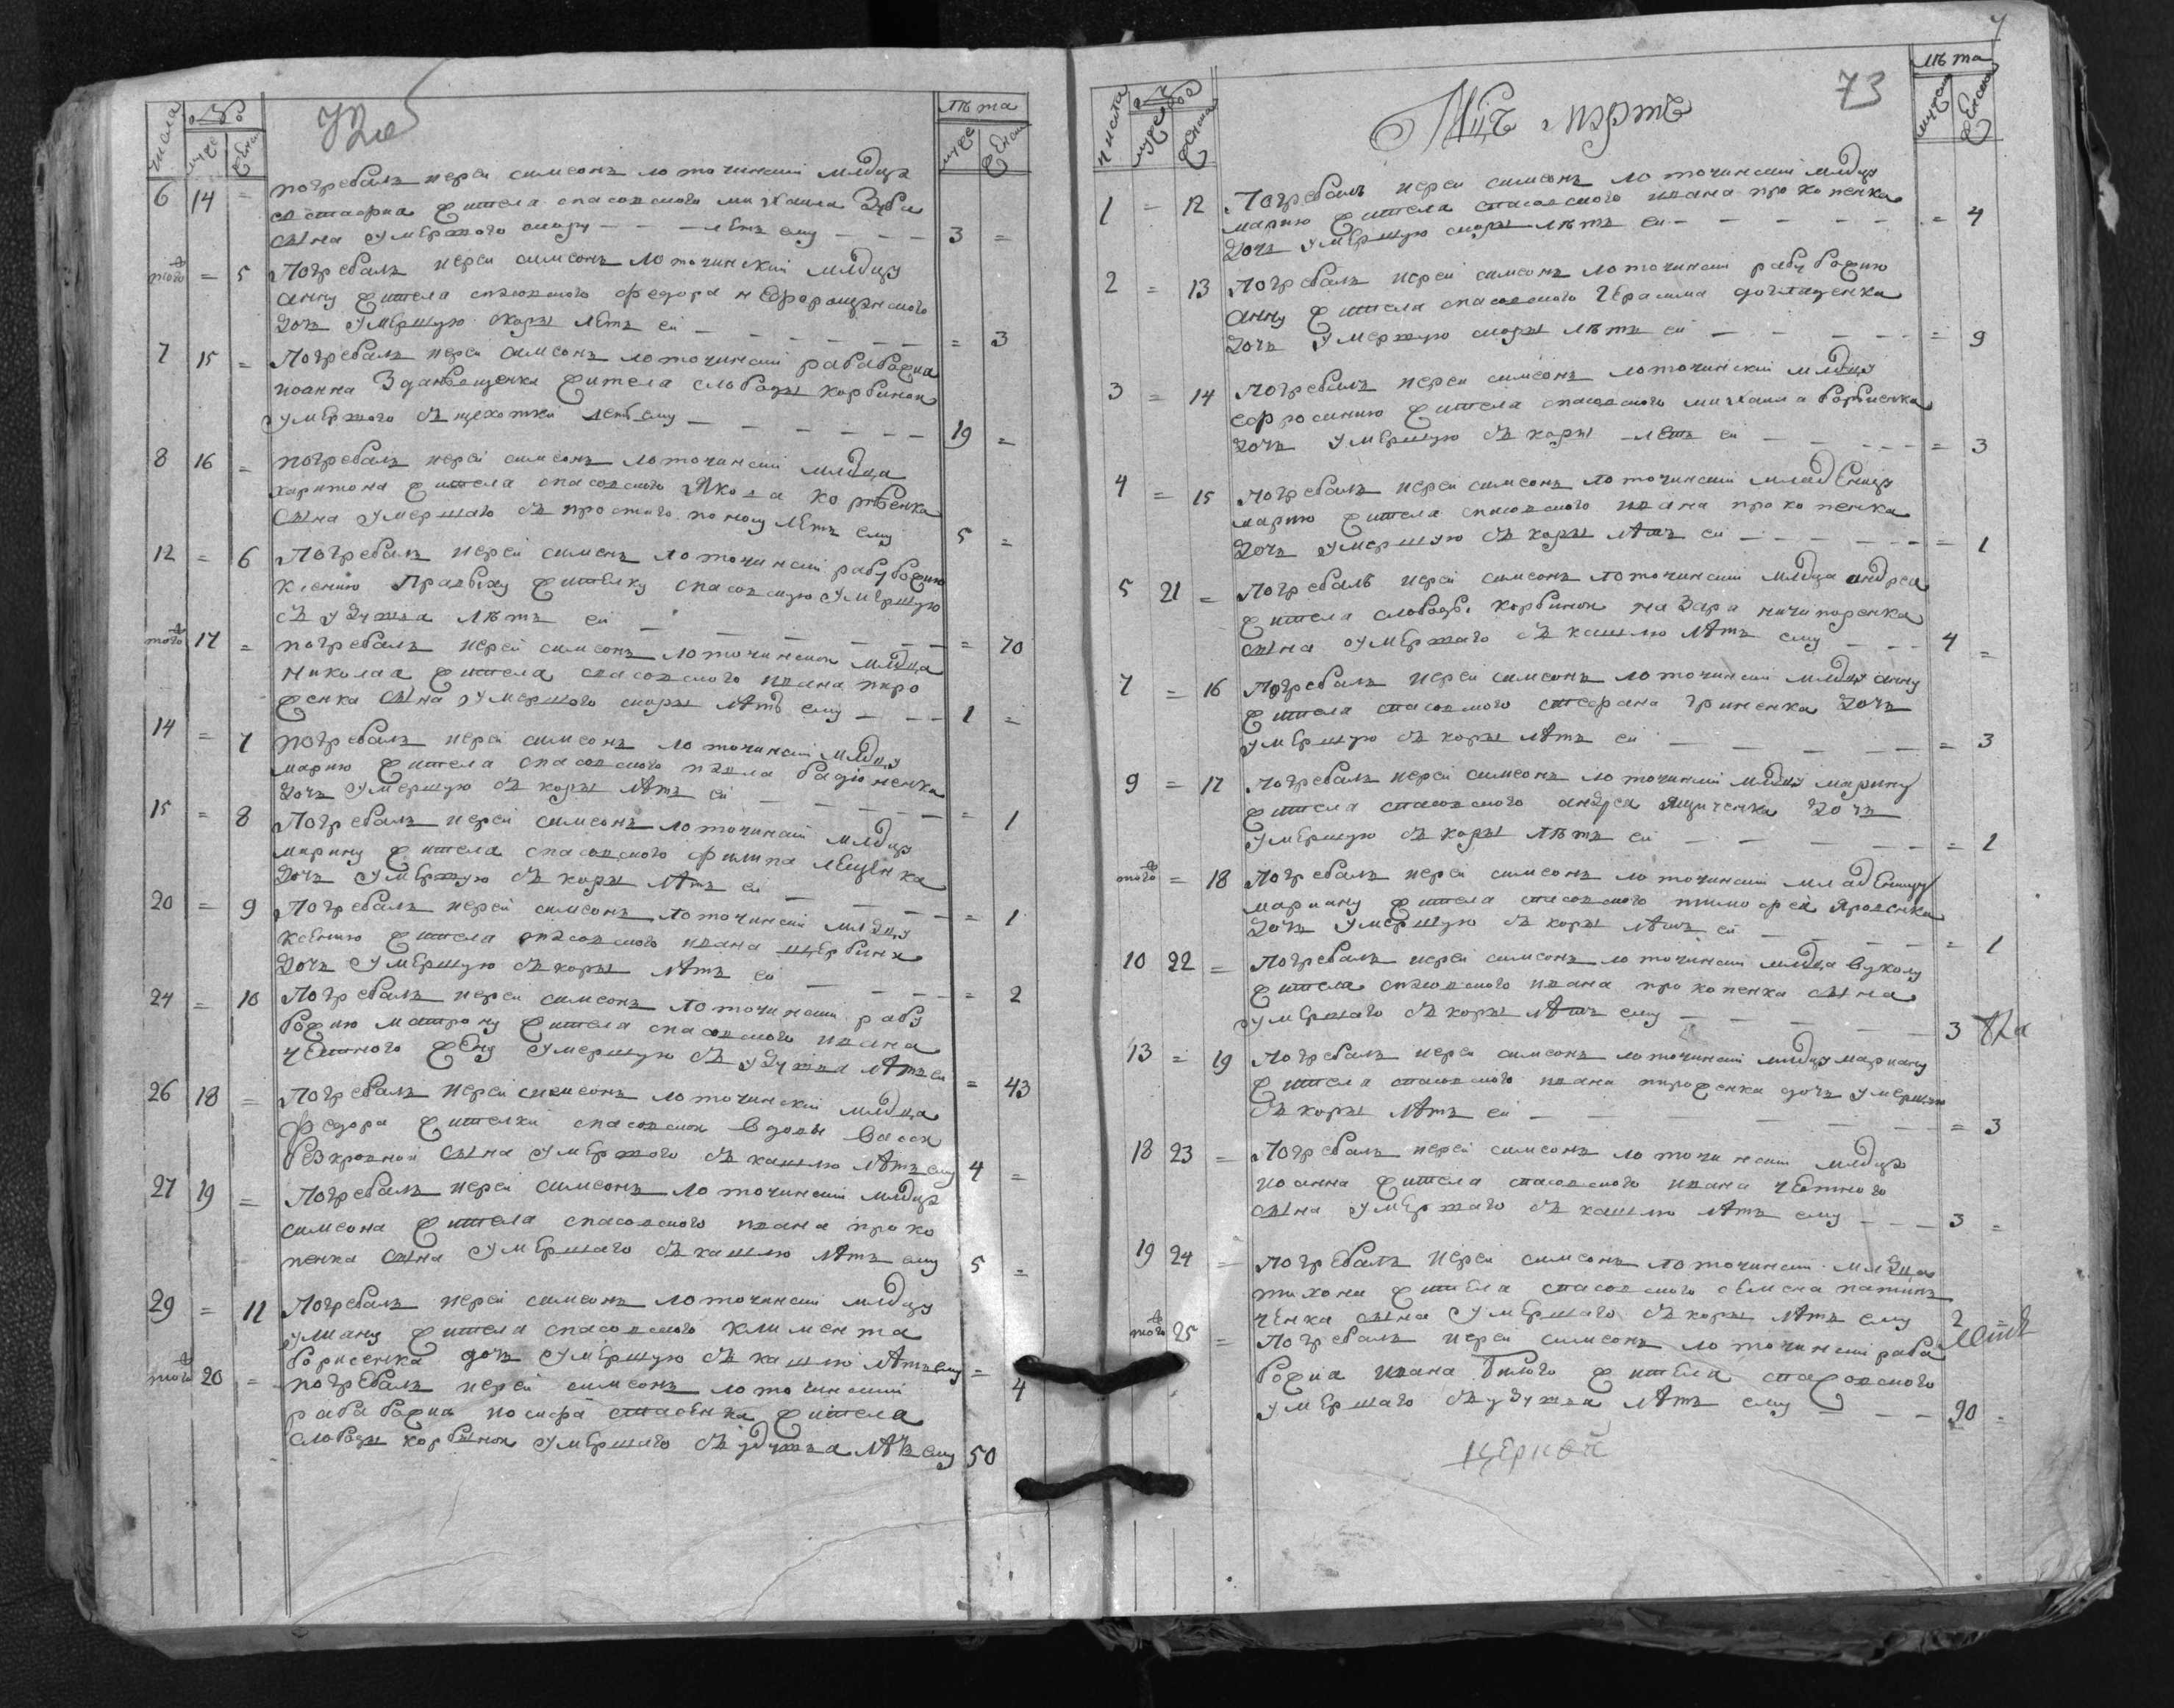 числа № муже женск лѣта муже женск
6 14 = погребалъ иерей симеонъ лоточинскій младца
естафиа жителя спасовского михаила Зуба
сына умершого лѣтъ ему 3 =
того = 5 Погребалъ иерей симеонъ лоточинский младцу
анну жителя спасовского федора
дочь умершую лѣтъ ей = 3
7 15 = Погребалъ иерей симеонъ лоточинский раба божиа
иоанна жителя слободы корбинои
умершого лѣтъ ему 19 =
8 16 = погребалъ иерей симеонъ лоточинский младца
харитона жителя спасовского Якова
сына умершаго съ поносу лѣтъ ему 5 =
12 = 6 Погребалъ иерей симеонъ лоточинский рабу божию
ксению жителку спасовскую умершую
съ удушя лѣтъ ей = 70
того 17 = погребалъ иерей симеонъ лоточинский младца
николая жителя спасовского ивана пиро
женка сына умершого лѣтъ ему 1 =
14 = 7 погребалъ иерей симеонъ лоточинский младцу
марию жителя спасовского павла
дочь умершую съ коры лѣтъ ей = 1
15 = 8 Погребалъ иерей симеонъ лоточинский младцу
марину жителя спасовского филипа лещенка
дочь умершую съ коры лѣтъ ей = 1
20 = 9 Погребалъ иерей симеонъ лоточинский младцу
ксению жителя спасовского ивана щербини
дочь умершую съ коры лѣтъ ей = 2
24 = 10 Погребалъ иерей симеонъ лоточинский рабу
божию матрону жителя спасовского ивана
жену умершую съ удушя лѣтъ ей = 43
26 18 = Погребалъ иерей симеонъ лоточинский младца
федора жителки спасовскои вдовы
сына умершого съ кашлю лѣтъ ему 4 =
27 19 = Погребалъ иерей симеонъ лоточинский младца
симеона жителя спасовского ивана проко
пенка сына умершаго съ кашлю лѣтъ ему 5 =
29 = 11 Погребалъ иерей симеонъ лоточинский младцу
улиану жителя спасовского климента
борисенка дочь умершую съ кашлю лѣтъ ему = 4
того 20 = погребалъ иерей симеонъ лоточинский
раба божиа иосифа жителя
слободы корбинои умершаго съ удушя лѣтъ ему 50
73
Мцъ мартъ
числа муже женска лѣта мужска женска
1 = 12 Погребалъ иерей симеонъ лоточинский младцу
марию жителя спасовского ивана прокопенка
дочь умершую лѣтъ ей = 4
2 = 13 Погребалъ иерей симеонъ лоточинский рабу божию
анну жителя спасовского герасима
дочь умершую лѣтъ ей = 9
3 = 14 Погребалъ иерей симеонъ лоточинский младцу
ефросинию жителя спасовского михаила
дочь умершую съ коры лѣтъ ей = 3
4 = 15 Погребалъ иерей симеонъ лоточинский младенцу
марию жителя спасовского ивана прокопенка
дочь умершую съ коры лѣтъ ей = 1
5 21 = Погребалъ иерей симеонъ лоточинский младца андрея
жителя слободы корбинои назара ничипоренка
сына умершаго съ кашлю лѣтъ ему 4 =
7 = 16 Погребалъ иерей симеонъ лоточинский младцу анну
жителя спасовского стефана гриненка дочь
умершую съ коры лѣтъ ей = 3
9 = 17 Погребалъ иерей симеонъ лоточинский младцу марину
жителя спасовского андрея дочь
умершую съ коры лѣтъ ей = 1
того = 18 Погребалъ иерей симеонъ лоточинский младеницу
мариану жителя спасовского тимофея
дочь умершую съ коры лѣтъ ей = 1
10 22 = Погребалъ иерей симеонъ лоточинский младца вуколу
жителя спасовского ивана прокопенка сына
умершаго съ коры лѣтъ ему 3
13 = 19 Погребалъ иерей симеонъ лоточинский младцу мариану
жителя спасовского ивана пироженка дочь умершую
съ коры лѣтъ ей = 3
18 23 = Погребалъ иерей симеонъ лоточинский младца
иоанна жителя спасовского ивана
сына умершаго съ кашлю лѣтъ ему 3 =
19 24 = Погребалъ иерей симеонъ лоточинский младца
тихона жителя спасовского семена
ченка сына умершаго съ коры лѣтъ ему 2 =
того 25 = Погребалъ иерей симеонъ лоточинский раба
божиа ивана билого жителя спасовского
умершаго съ удушя лѣтъ ему 90 =